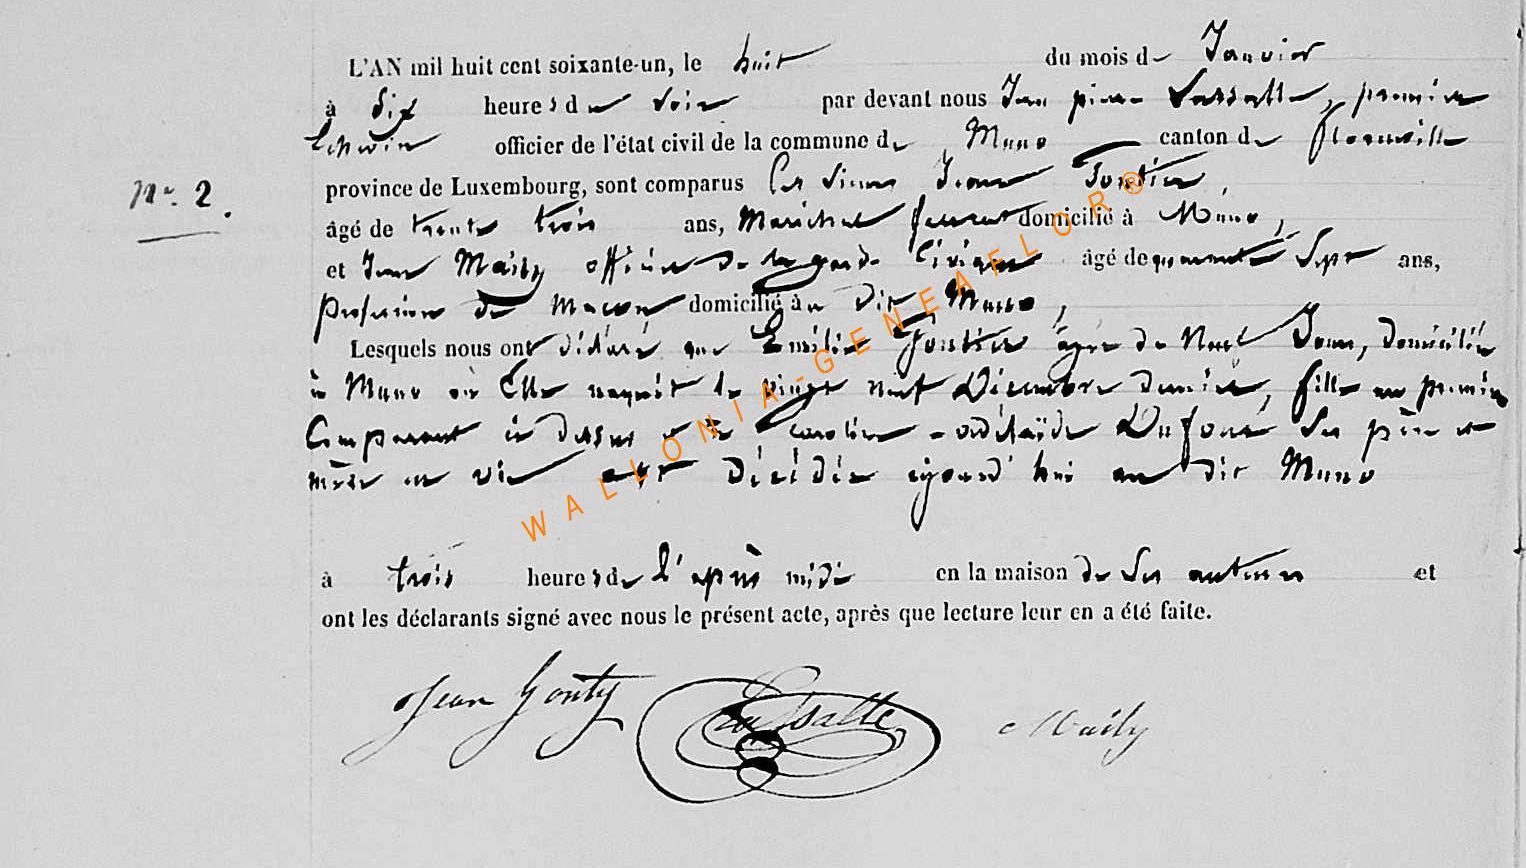 L'AN mil huit cent soixante-un, le huit du mois de Janvier
à Six heures du Soir par devant nous Jean pierre Lassalle, premier
Echevin officier de l'état civil de la commune de Muno canton de Florenville
province de Luxembourg, sont comparus Les Sieurs Jean
N°. 2.
âgé de trente trois ans, Maréchal ferrant domicilié à Muno,
et Jean Maily officier de la garde Civique âgé de quarante Sept ans,
profession de Macon domicilié au dit Muno,
Lesquels nous ont déclaré que Emilie agée de Neuf Jours, domiciliée
à Muno où Elle naquit le vingt neuf Décembre dernier, fille au premier
Comparant ci dessus et de Caroline adélaïde Dufoué Ses père et
mère en vie est décédée aujourd'hui au dit Muno
à trois heures de l'après midi en la maison de Ses auteurs et
ont les déclarants signé avec nous le présent acte, après que lecture leur en a été faite.
Jean Gonty Lassalle Maily
WALLONIA-GENEAFLOR®